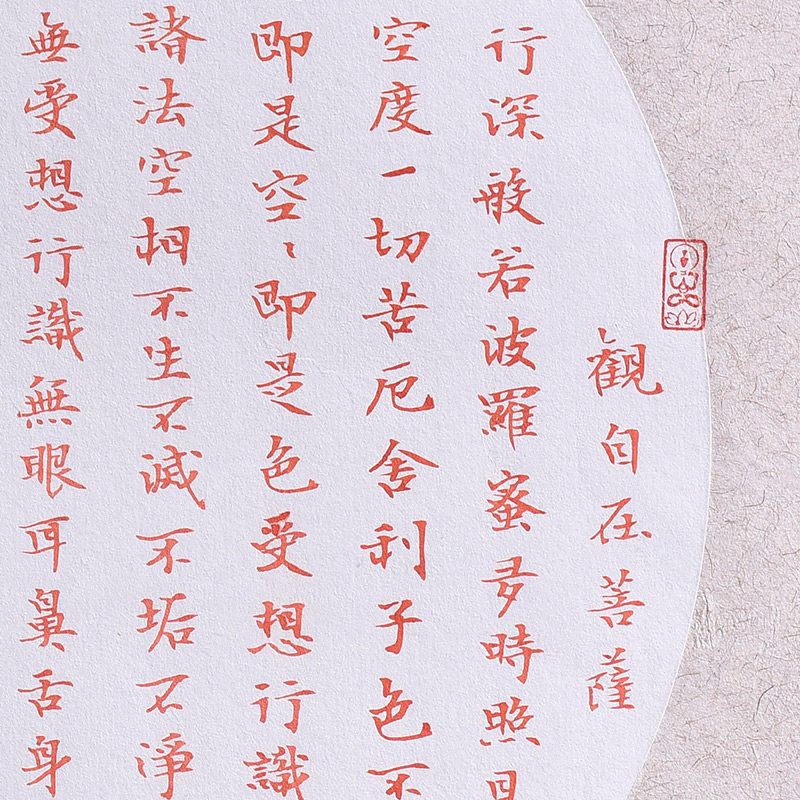 觀自在菩薩
行深般若波羅蜜多時照
空度一切苦厄舍利子色不
即是空〻即是色受想行識
諸法空相不生不滅不垢不淨
無受想行識無眼耳鼻舌身